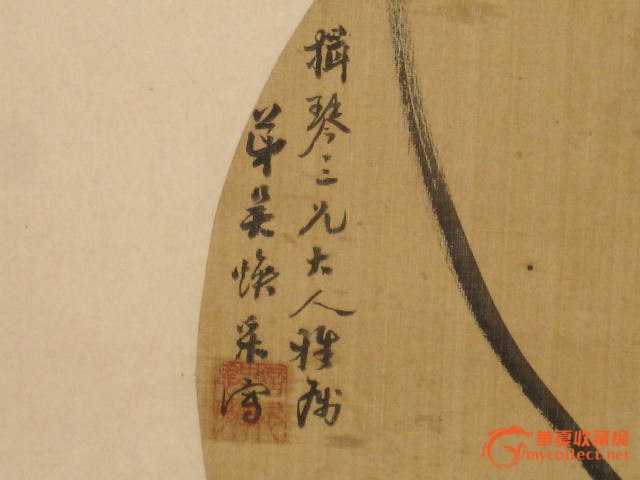 揖琴三兄大人雅属
弟吴焕采写
華夏收藏網
mycollect.net